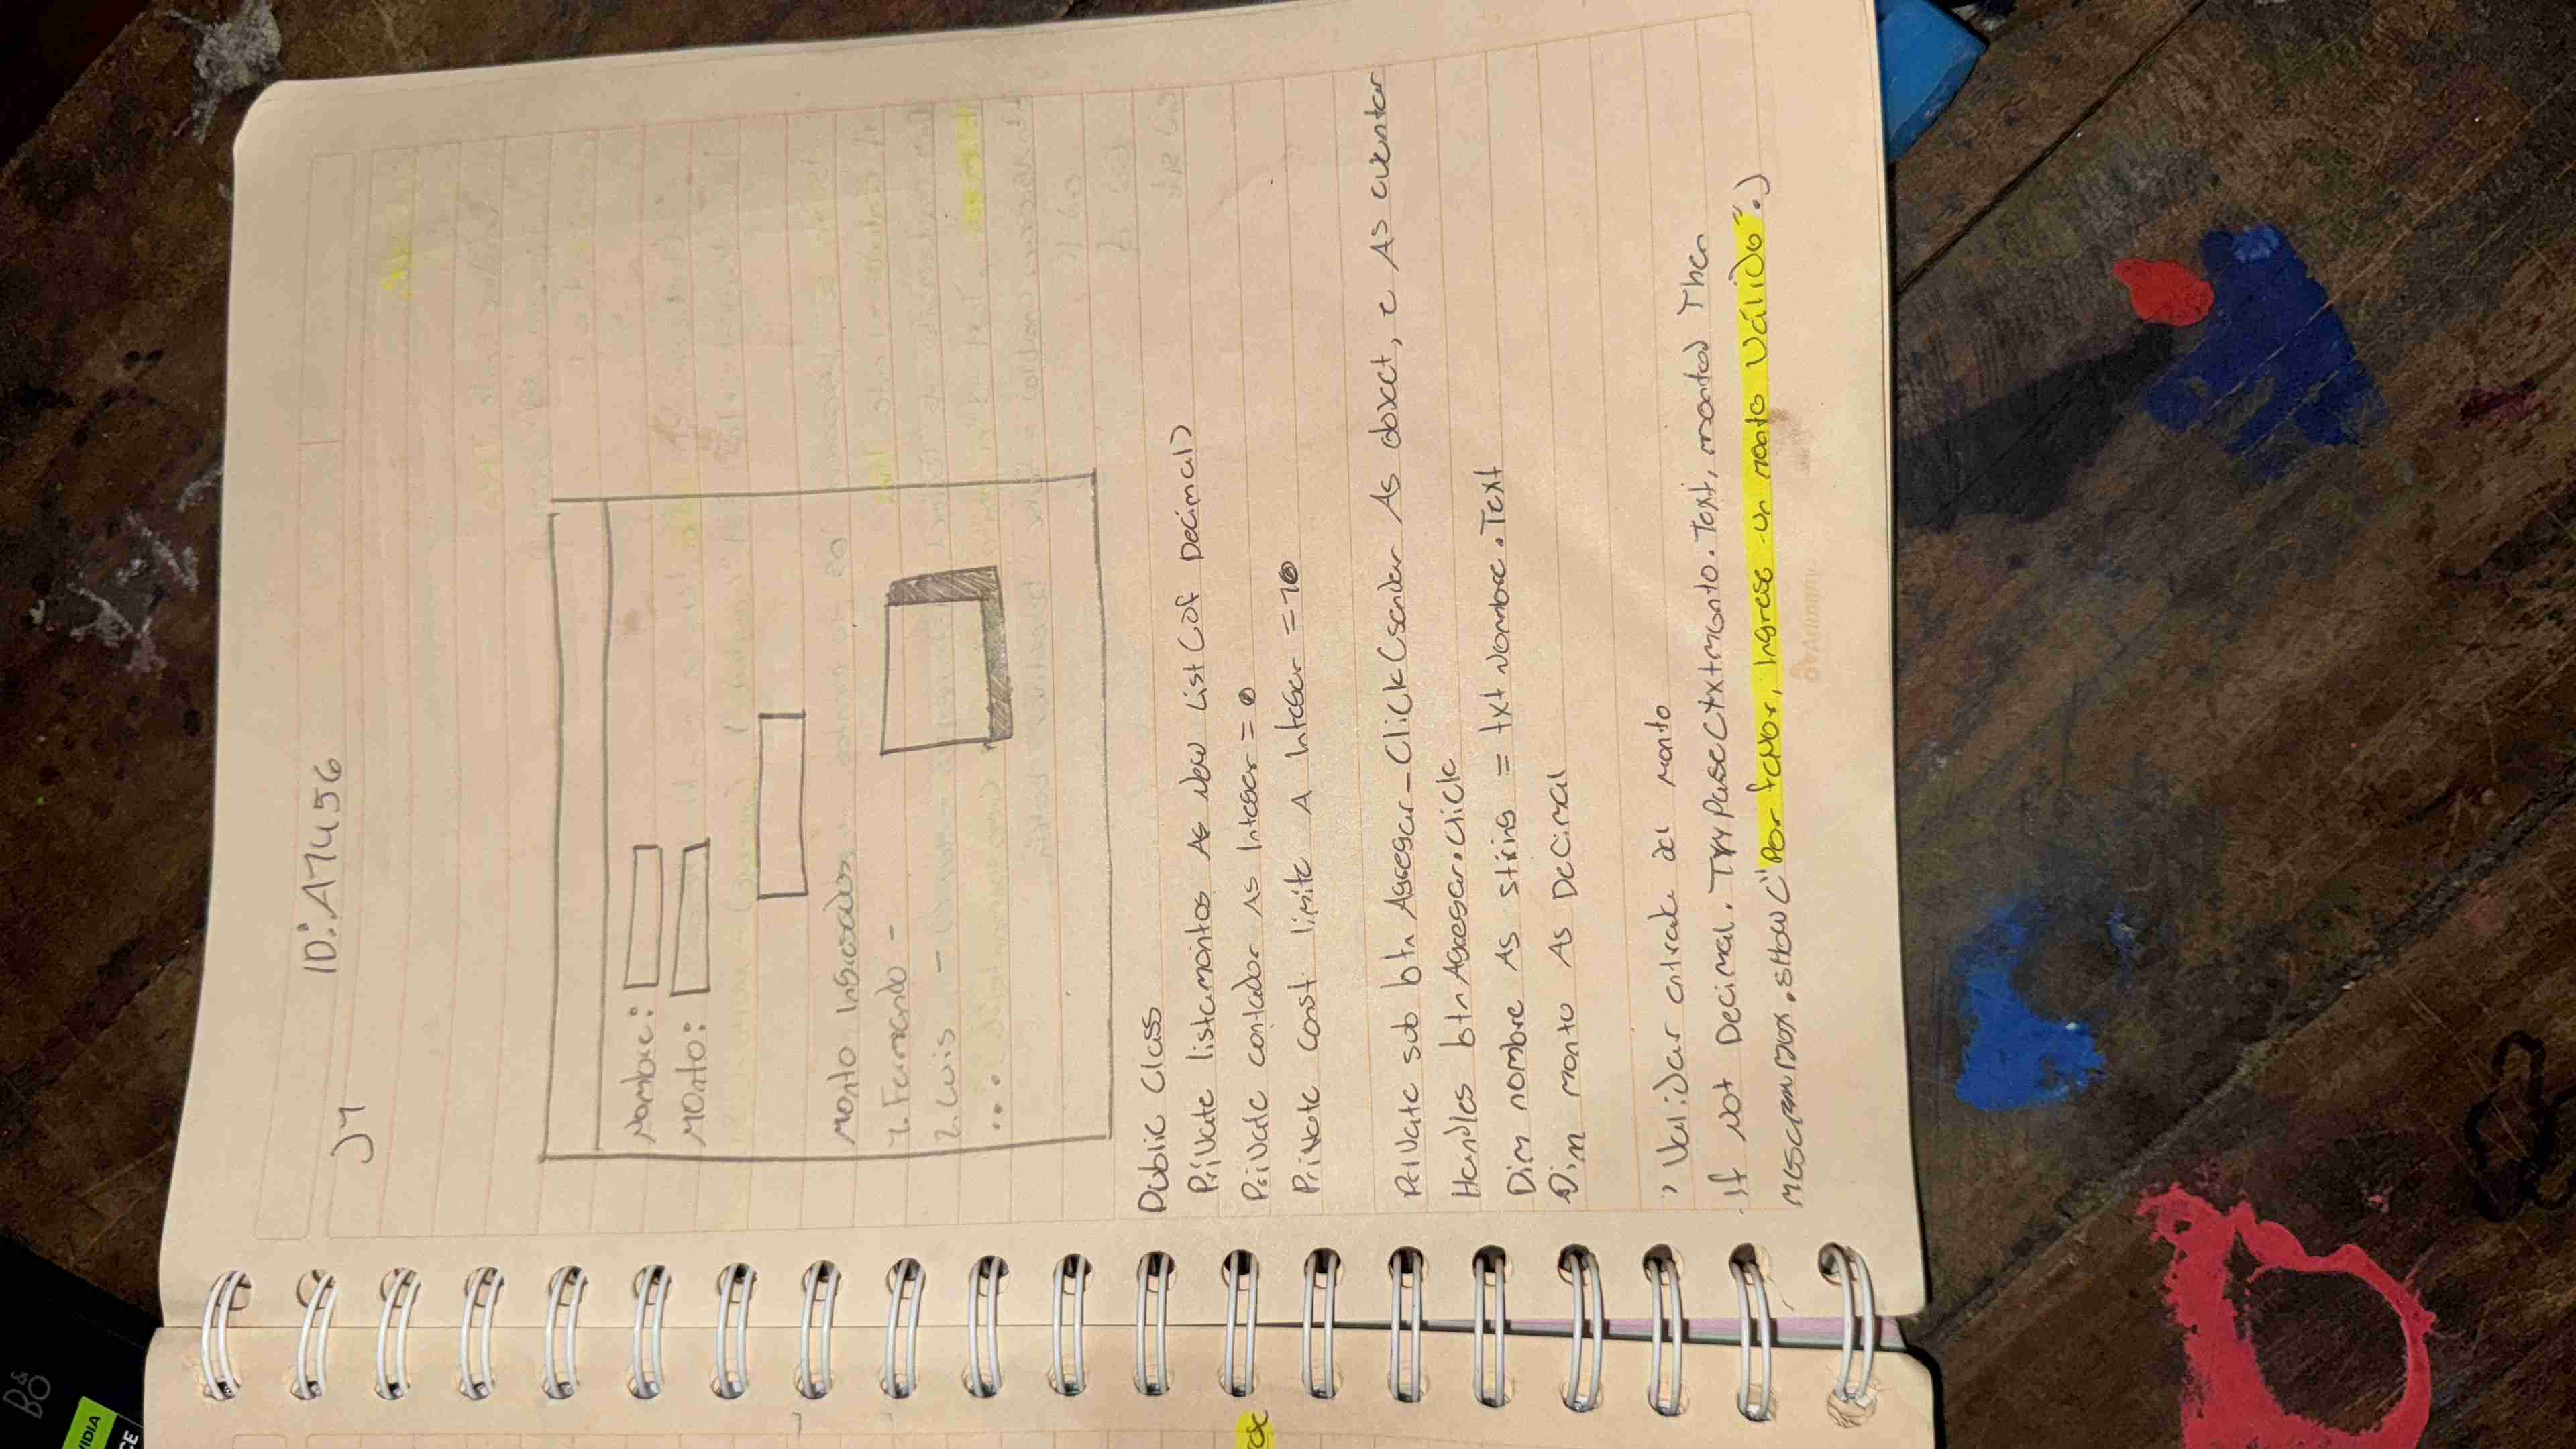 ID: A17456
J1
Nombre:
Monto:
Monto Ingresados
1. Fernando -
2. Luis -
...
Public Class
Private listamontos As New List(Of Decimal)
Private contador As Integer = 0
Private Const. limite A Integer = 10
Private sub btn Agregar_Click(sender As object, e As eventar
Handles btnAgregar.click
Dim nombre As string = txt Nombre.Text
Dim monto As Decimal
' Validar entrada del monto
If Not Decimal.TryPase(txtMonto.Text, monto) Then
.show("Por favor, Ingrese un monto Válido".)
Artinamy